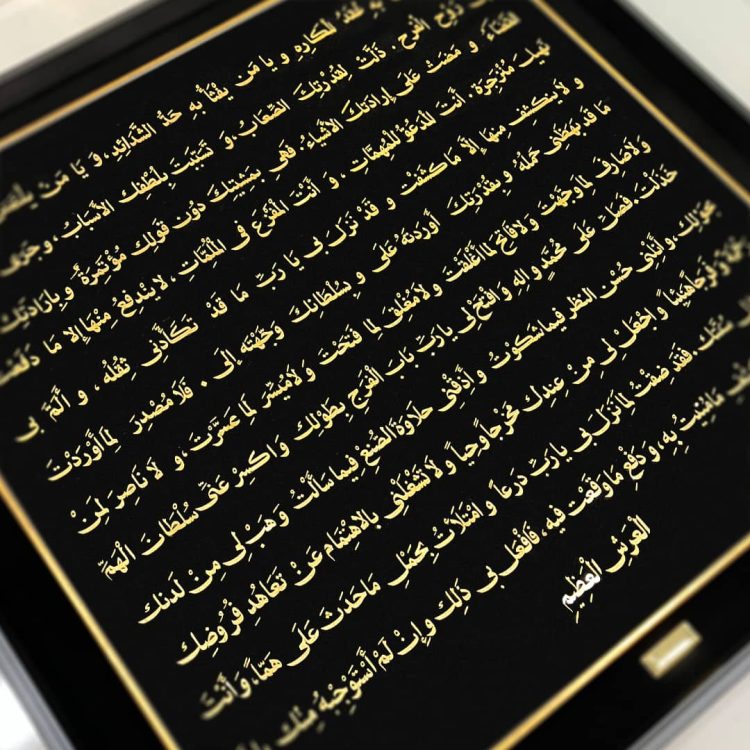 بِهِ عُقَدُ الْمَكَارِهِ وَ يَا مَنْ يُفْثَأُ بِهِ حَدُّ الشَّدَائِدِ، وَ يَا مَنْ
رَوْحِ الْفَرَجِ. ذَلَّتْ لِقُدْرَتِكَ الصِّعَابُ، وَ تَسَبَّبَتْ بِلُطْفِكَ الْأَسْبَابُ، وَ جَرَى
الْقَضَاءُ وَ مَضَتْ عَلَى إِرَادَتِكَ الْأَشْيَاءُ. فَهِيَ بِمَشِيَّتِكَ دُونَ قَوْلِكَ مُؤْتَمِرَةٌ وَ بِإِرَادَتِكَ
نَهْيِكَ مُنْزَجِرَةٌ. أَنْتَ الْمَدْعُوُّ لِلْمُهِمَّاتِ، وَ أَنْتَ الْمَفْزَعُ فِي الْمُلِمَّاتِ، لَا يَنْدَفِعُ مِنْهَا إِلَّا مَا دَفَعْتَ
وَ لَا يَنْكَشِفُ مِنْهَا إِلَّا مَا كَشَفْتَ وَ قَدْ نَزَلَ بِي يَا رَبِّ مَا قَدْ تَكَأَّدَنِي ثِقْلُهُ، وَ أَلَمَّ بِي
مَا قَدْ بَهَظَنِي حَمْلُهُ وَ بِقُدْرَتِكَ أَوْرَدْتَهُ عَلَيَّ وَ بِسُلْطَانِكَ وَجَّهْتَهُ إِلَيَّ. فَلَا مُصْدِرَ لِمَا أَوْرَدْتَ
وَ لَا صَارِفَ لِمَا وَجَّهْتَ وَ لَا فَاتِحَ لِمَا أَغْلَقْتَ وَ لَا مُغْلِقَ لِمَا فَتَحْتَ وَ لَا مُيَسِّرَ لِمَا عَسَّرْتَ، وَ لَا نَاصِرَ لِمَنْ
خَذَلْتَ. فَصَلِّ عَلَى مُحَمَّدٍ وَ الِهِ وَ افْتَحْ لِي يَا رَبِّ بَابَ الْفَرَجِ بِطَوْلِكَ وَ اكْسِرْ عَنِّي سُلْطَانَ الْهَمِّ
بِحَوْلِكَ، وَ أَنِلْنِي حُسْنَ النَّظَرِ فِيمَا شَكَوْتُ وَ أَذِقْنِي حَلَاوَةَ الصُّنْعِ فِيمَا سَأَلْتُ وَ هَبْ لِي مِنْ لَدُنْكَ
رَحْمَةً وَ فَرَجاً هَنِيئاً وَ اجْعَلْ لِي مِنْ عِنْدِكَ مَخْرَجاً وَحِيّاً وَ لَا تَشْغَلْنِي بِالاهْتِمَامِ عَنْ تَعَاهُدِ فُرُوضِكَ
سُنَّتِكَ. فَقَدْ ضِقْتُ لِمَا نَزَلَ بِي يَا رَبِّ ذَرْعاً وَ امْتَلَأْتُ بِحَمْلِ مَا حَدَثَ عَلَيَّ هَمّاً، وَ أَنْتَ
مَا مُنِيتُ بِهِ، وَ دَفْعِ مَا وَقَعْتُ فِيهِ، فَافْعَلْ بِي ذَلِكَ وَ إِنْ لَمْ أَسْتَوْجِبْهُ مِنْكَ
الْعَرْشِ الْعَظِيمِ